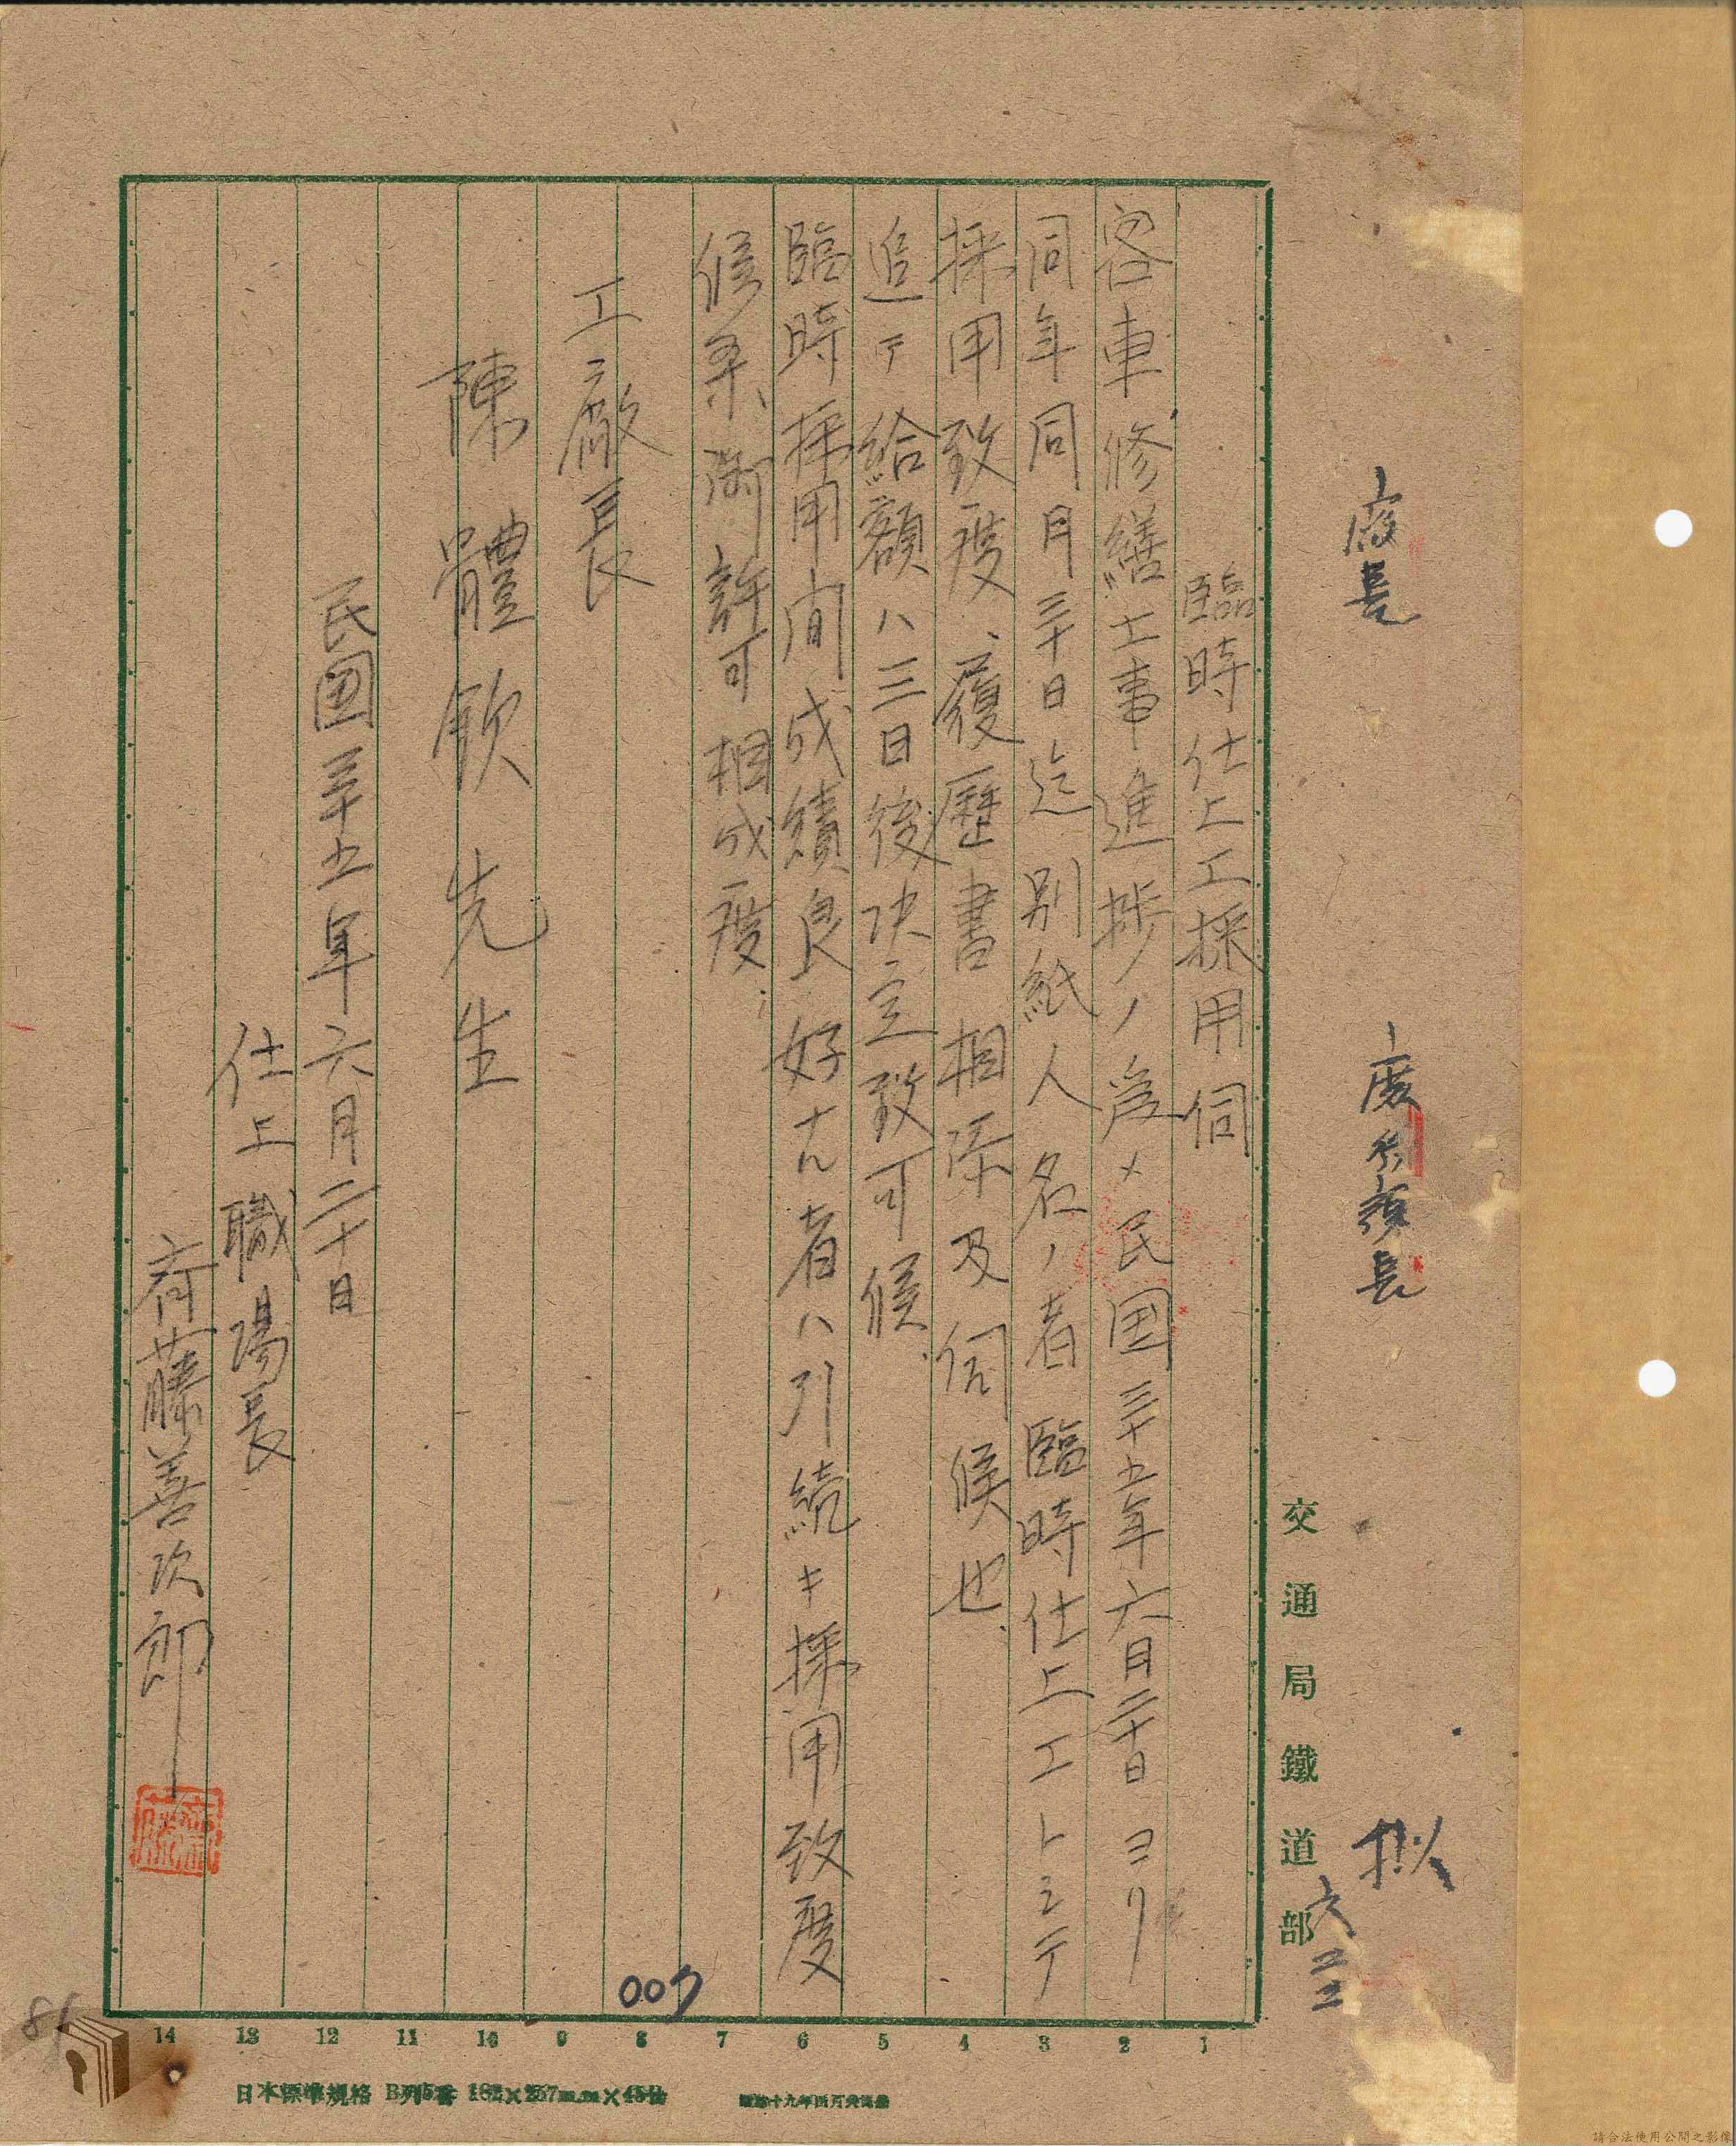 廠長
擬
六
交通局鐵道部
臨時仕上工採用伺
客車修繕工事進捗ノ為メ民国三十五年六月二十日ヨリ
同年同月三十日迄別紙人名ノ者臨時仕上工トシテ
採用致度、履歴書相添及伺候也、
追テ給額ハ三日後決定致可候、
臨時採用間成績良好ナル者ハ引続キ採用致度
候条、御許可相成度、
工廠長
陳體欽先生
民国三十五年六月二十日
仕上職場長
斉藤善次郎
齋藤
007
14 13 12 11 10 9 8 7 6 5 4 3 2 1
日本標準規格 B列5番 182×257m.m×45
86
請合法使用公開之影像